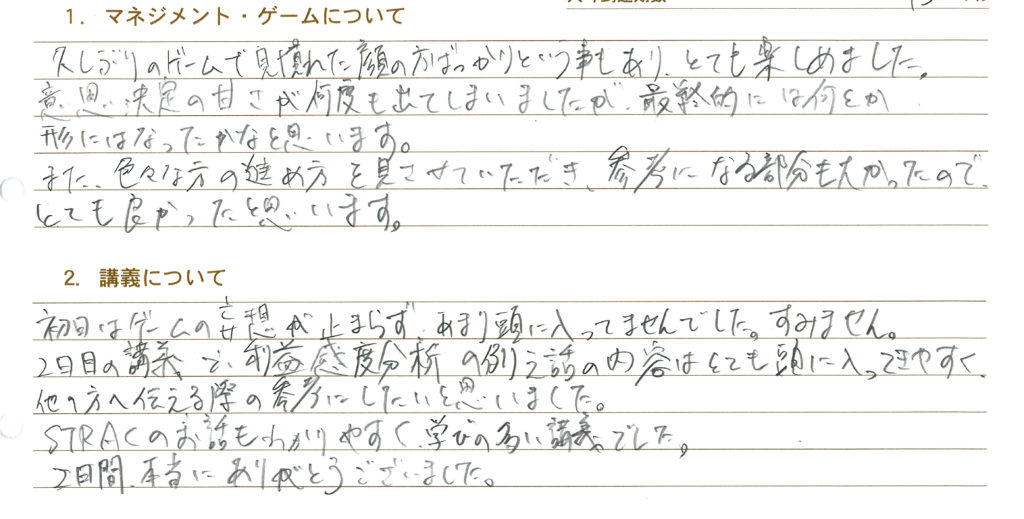 1. マネジメント・ゲームについて
久しぶりのゲームで見慣れた顔の方ばっかりという事もあり、とても楽しめました。
意思決定の甘さが何度も出てしまいましたが、最終的には何とか
形にはなったかなと思います。
また、色々な方の進め方を見させていただき、参考になる部分も大かったので、
とても良かったと思います。
2. 講義について
初日はゲームの妄想が止まらず、あまり頭に入ってませんでした。すみません。
2日目の講義で、利益感度分析の例え話の内容はとても頭に入ってきやすく、
他の方へ伝える際の参考にしたいと思いました。
STRACのお話もわかりやすく、学びの多い講義でした。
2日間、本当にありがとうございました。